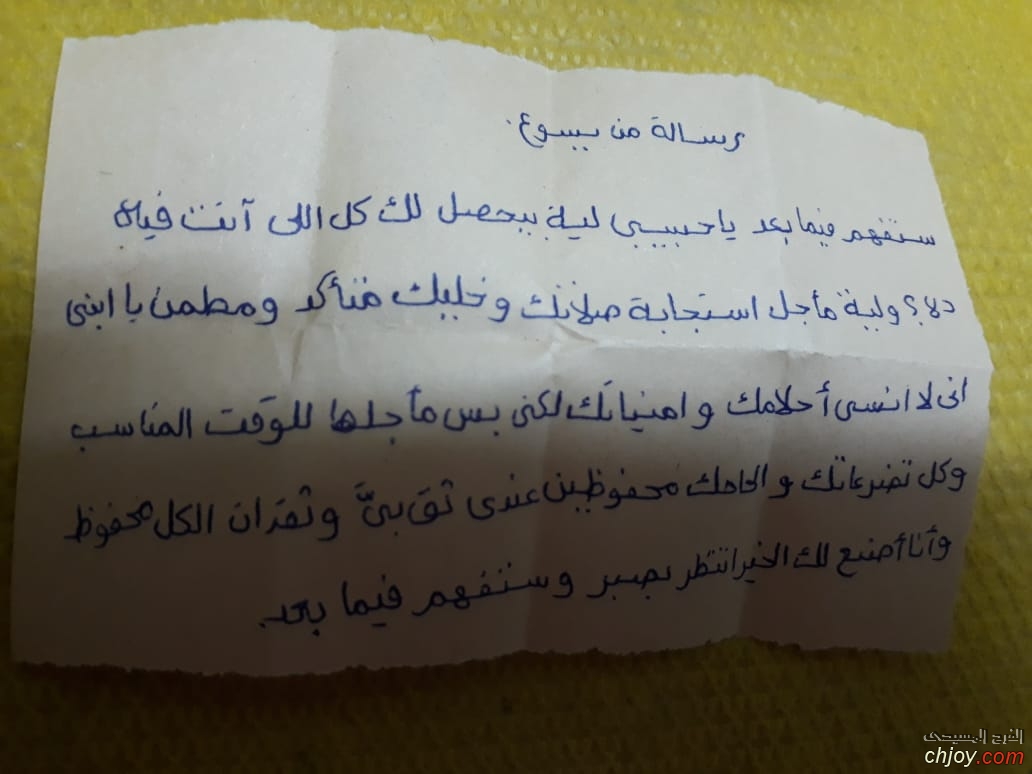 رسالة من يسوع.
ستفهم فيما بعد ياحبيبى لية بيحصل لك كل اللى آنت فياه
دلا؟ ولية مأجل استجابة صلاتك وخليك متأكد ومطمن يا ابنى
انى لا انسى أحلامك وامنياتك لكنى بس مأجلها للوقت المناسب
وكل تضرعاتك والحاحك محفوظين عندى ثق بىَّ وثقد ان الكل محفوظ
وأنا أصنع لك الخير انتظر بصبر وستفهم فيما بعد.
الفرح المسيحى
chjoy.com